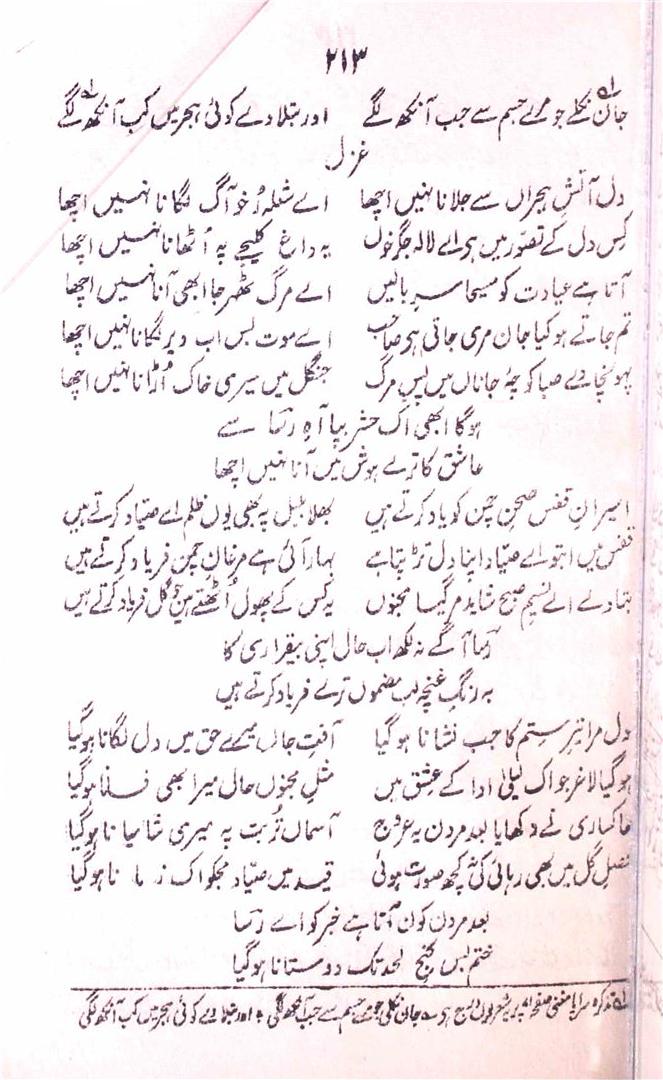 ۲۱۳
جان نکلے جو مرے جسم سے جب آنکھ لگے اور بتلا دے کوئی ہجر میں کب آنکھ لگے
غزل
دل آتشِ ہجراں سے جلانا نہیں اچھا اے شعلہ رُخو آگ لگانا نہیں اچھا
کس دل کے تصوّر میں ہو اے لالہ جگر خوں یہ داغ کلیجے پہ اُٹھانا نہیں اچھا
آتا ہے عیادت کو مسیحا سرِ بالیں اے مرگ ٹھہر جا ابھی آنا نہیں اچھا
تم جاتے ہو کیا جان مری جاتی ہی صاحب اے موت بس اب دیر لگانا نہیں اچھا
پہونچا دے صبا کوچۂ جاناں میں پسِ مرگ جنگل میں میری خاک اُڑانا نہیں اچھا
ہوگا ابھی اک حشر بپا آہِ رسا سے
عاشق کا ترے ہوش میں آنا نہیں اچھا
اسیرانِ قفس صحنِ چمن کو یاد کرتے ہیں بھلا بلبل پہ بھی یوں ظلم اے صیّاد کرتے ہیں
قفس میں ابتو اے صیّاد اپنا دل تڑپتا ہے بہار آئی ہے مرغانِ چمن فریاد کرتے ہیں
بتا دے اے نسیم صبح شاید مر گیا مجنوں یہ کس کے پھول اُٹھتے ہیں گل فریاد کرتے ہیں
رسا آگے نہ لکھ اب حال اپنی بیقراری کا
بہ رنگِ غنچہ لب مضموں ترے فریاد کرتے ہیں
دل مرا تیرِ ستم کا جب نشانا ہوگیا آفتِ جاں میرے حق میں دل لگانا ہوگیا
ہوگیا لاغر جو اک لیلیٰ ادا کے عشق میں مثلِ مجنوں حال میرا بھی فسانا ہوگیا
خاکساری نے دکھایا بعد مردن یہ عروج آسماں تُربت پہ میری شامیانا ہوگیا
فصلِ گل میں بھی رہائی کی نہ کچھ صورت ہوئی قید میں صیّاد مجکو اک زمانا ہوگیا
بعد مردن کون آتا ہے خبر کو اے رسا
ختم بس کنجِ لحد تک دوستانا ہوگیا
تذکرہ سراپا سخن صفحہ پر یہ شعر یوں درج ہے جان نکلی جو مرے جسم سے جب آنکھ لگی اور بتلا دے کوئی ہجر میں کب آنکھ لگی